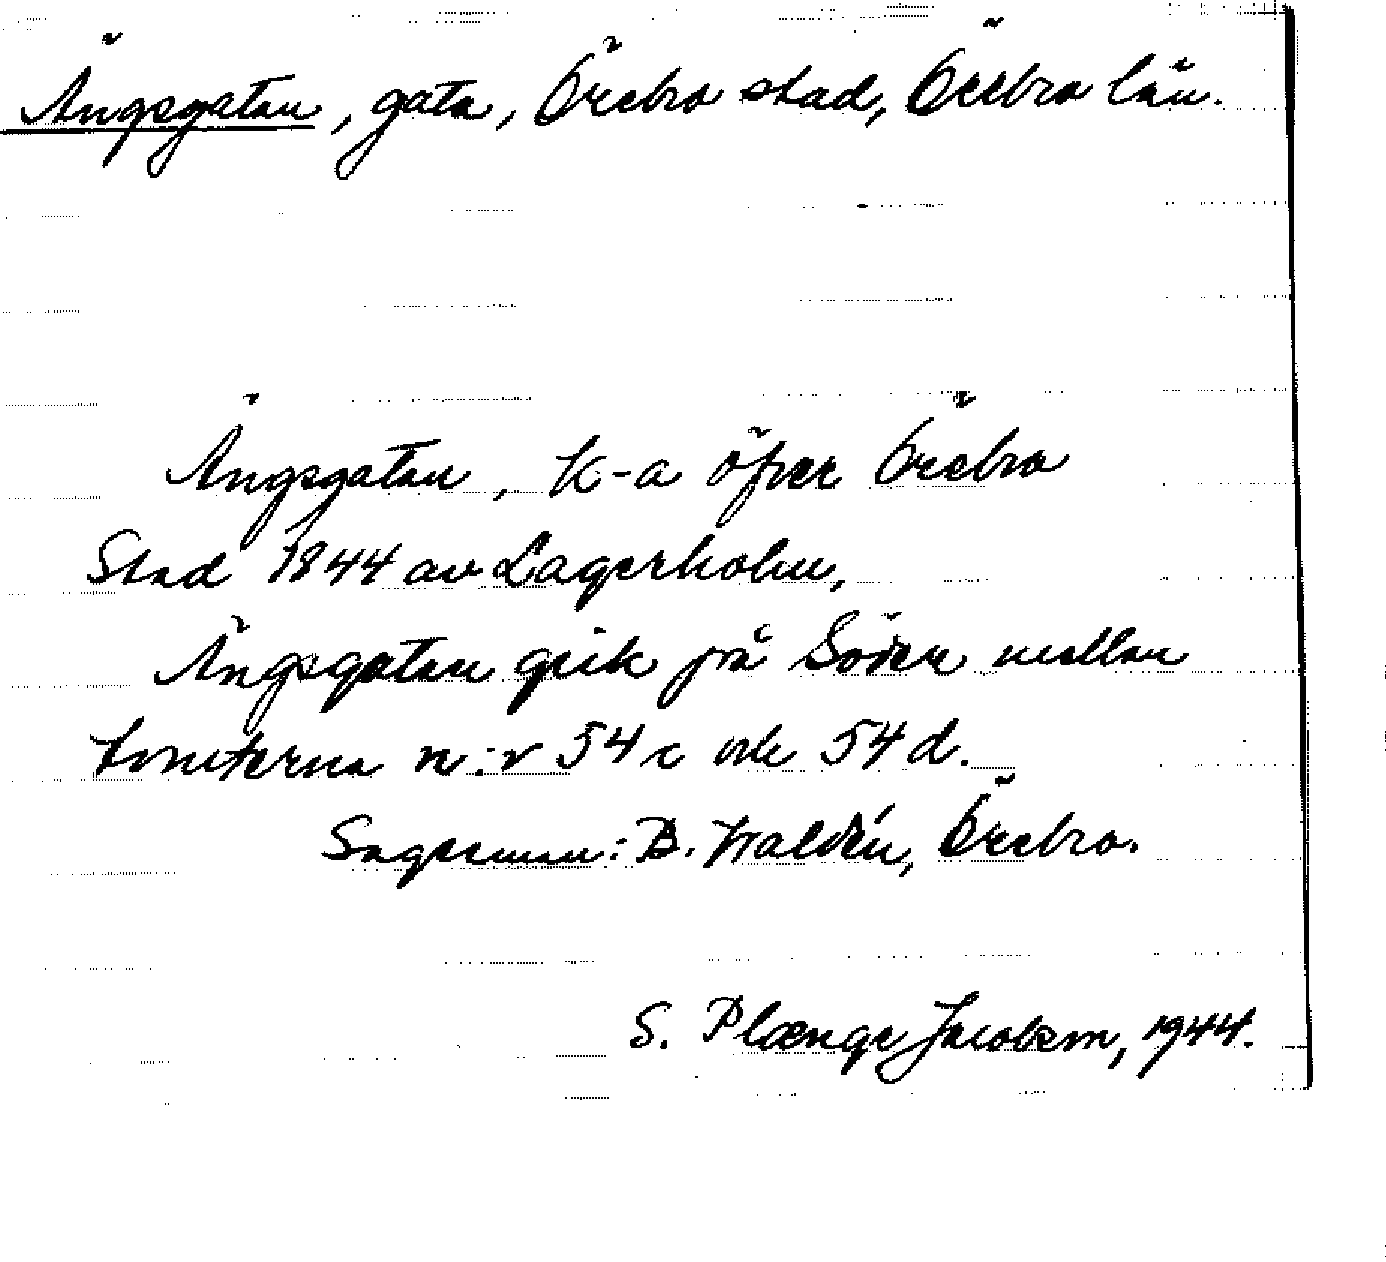 Ängsgatan, gata, Örebro stad, Örebro län.
Ängsgatan, K-a öfver Örebro
Stad 1844 av Lagerholm,
Ängsgatan gick på Söder mellan
tomterna n:r 54 c och 54 d.
Sagesman: B. Waldén, Örebro.
S. Plænge Jacobson, 1944.